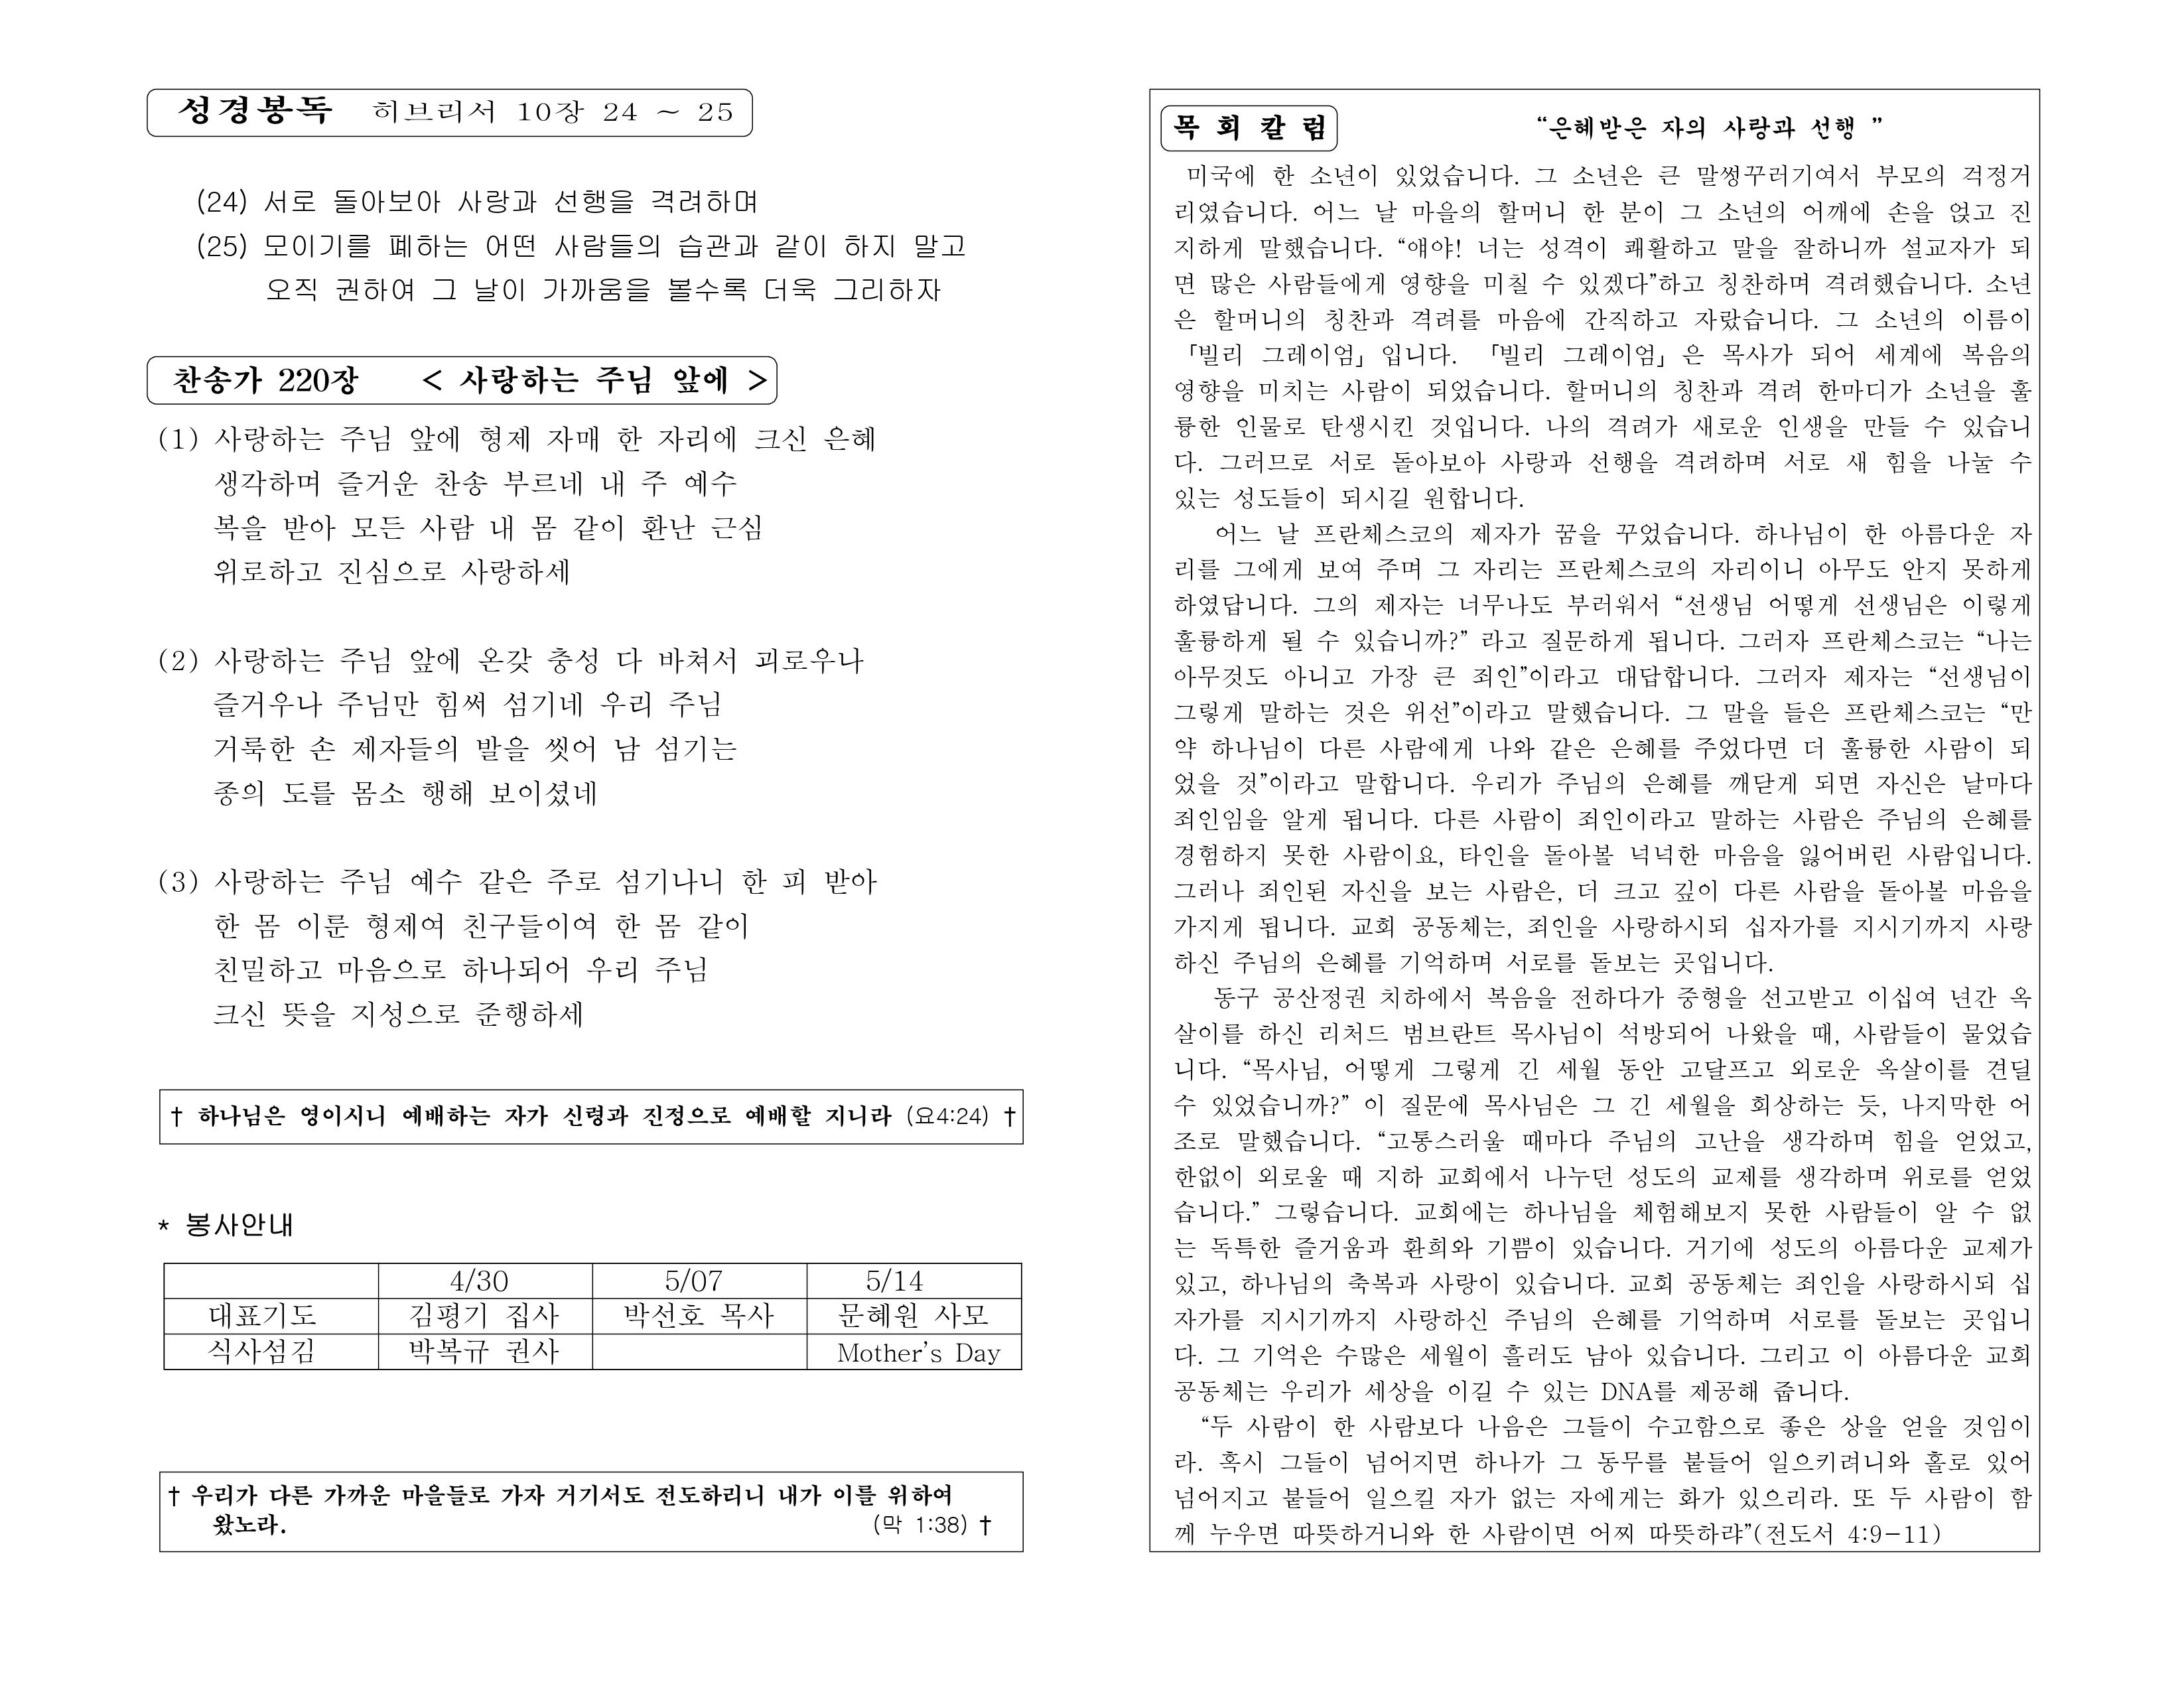 성경봉독 히브리서 10장 24 ~ 25
(24) 서로 돌아보아 사랑과 선행을 격려하며
(25) 모이기를 폐하는 어떤 사람들의 습관과 같이 하지 말고
오직 권하여 그 날이 가까움을 볼수록 더욱 그리하자
찬송가 220장 < 사랑하는 주님 앞에 >
(1) 사랑하는 주님 앞에 형제 자매 한 자리에 크신 은혜
생각하며 즐거운 찬송 부르네 내 주 예수
복을 받아 모든 사람 내 몸 같이 환난 근심
위로하고 진심으로 사랑하세
(2) 사랑하는 주님 앞에 온갖 충성 다 바쳐서 괴로우나
즐거우나 주님만 힘써 섬기네 우리 주님
거룩한 손 제자들의 발을 씻어 남 섬기는
종의 도를 몸소 행해 보이셨네
(3) 사랑하는 주님 예수 같은 주로 섬기나니 한 피 받아
한 몸 이룬 형제여 친구들이여 한 몸 같이
친밀하고 마음으로 하나되어 우리 주님
크신 뜻을 지성으로 준행하세
† 하나님은 영이시니 예배하는 자가 신령과 진정으로 예배할 지니라 (요4:24) †
* 봉사안내
4/30 5/07 5/14
대표기도 김평기 집사 박선호 목사 문혜원 사모
식사섬김 박복규 권사 Mother's Day
† 우리가 다른 가까운 마을들로 가자 거기서도 전도하리니 내가 이를 위하여
왔노라. (막 1:38) †
목 회 칼 럼 “은혜받은 자의 사랑과 선행 ”
미국에 한 소년이 있었습니다. 그 소년은 큰 말썽꾸러기여서 부모의 걱정거
리였습니다. 어느 날 마을의 할머니 한 분이 그 소년의 어깨에 손을 얹고 진
지하게 말했습니다. “얘야! 너는 성격이 쾌활하고 말을 잘하니까 설교자가 되
면 많은 사람들에게 영향을 미칠 수 있겠다”하고 칭찬하며 격려했습니다. 소년
은 할머니의 칭찬과 격려를 마음에 간직하고 자랐습니다. 그 소년의 이름이
「빌리 그레이엄」입니다. 「빌리 그레이엄」은 목사가 되어 세계에 복음의
영향을 미치는 사람이 되었습니다. 할머니의 칭찬과 격려 한마디가 소년을 훌
륭한 인물로 탄생시킨 것입니다. 나의 격려가 새로운 인생을 만들 수 있습니
다. 그러므로 서로 돌아보아 사랑과 선행을 격려하며 서로 새 힘을 나눌 수
있는 성도들이 되시길 원합니다.
어느 날 프란체스코의 제자가 꿈을 꾸었습니다. 하나님이 한 아름다운 자
리를 그에게 보여 주며 그 자리는 프란체스코의 자리이니 아무도 안지 못하게
하였답니다. 그의 제자는 너무나도 부러워서 “선생님 어떻게 선생님은 이렇게
훌륭하게 될 수 있습니까?” 라고 질문하게 됩니다. 그러자 프란체스코는 “나는
아무것도 아니고 가장 큰 죄인”이라고 대답합니다. 그러자 제자는 “선생님이
그렇게 말하는 것은 위선”이라고 말했습니다. 그 말을 들은 프란체스코는 “만
약 하나님이 다른 사람에게 나와 같은 은혜를 주었다면 더 훌륭한 사람이 되
었을 것”이라고 말합니다. 우리가 주님의 은혜를 깨닫게 되면 자신은 날마다
죄인임을 알게 됩니다. 다른 사람이 죄인이라고 말하는 사람은 주님의 은혜를
경험하지 못한 사람이요, 타인을 돌아볼 넉넉한 마음을 잃어버린 사람입니다.
그러나 죄인된 자신을 보는 사람은, 더 크고 깊이 다른 사람을 돌아볼 마음을
가지게 됩니다. 교회 공동체는, 죄인을 사랑하시되 십자가를 지시기까지 사랑
하신 주님의 은혜를 기억하며 서로를 돌보는 곳입니다.
동구 공산정권 치하에서 복음을 전하다가 중형을 선고받고 이십여 년간 옥
살이를 하신 리처드 범브란트 목사님이 석방되어 나왔을 때, 사람들이 물었습
니다. “목사님, 어떻게 그렇게 긴 세월 동안 고달프고 외로운 옥살이를 견딜
수 있었습니까?” 이 질문에 목사님은 그 긴 세월을 회상하는 듯, 나지막한 어
조로 말했습니다. “고통스러울 때마다 주님의 고난을 생각하며 힘을 얻었고,
한없이 외로울 때 지하 교회에서 나누던 성도의 교제를 생각하며 위로를 얻었
습니다.” 그렇습니다. 교회에는 하나님을 체험해보지 못한 사람들이 알 수 없
는 독특한 즐거움과 환희와 기쁨이 있습니다. 거기에 성도의 아름다운 교제가
있고, 하나님의 축복과 사랑이 있습니다. 교회 공동체는 죄인을 사랑하시되 십
자가를 지시기까지 사랑하신 주님의 은혜를 기억하며 서로를 돌보는 곳입니
다. 그 기억은 수많은 세월이 흘러도 남아 있습니다. 그리고 이 아름다운 교회
공동체는 우리가 세상을 이길 수 있는 DNA를 제공해 줍니다.
“두 사람이 한 사람보다 나음은 그들이 수고함으로 좋은 상을 얻을 것임이
라. 혹시 그들이 넘어지면 하나가 그 동무를 붙들어 일으키려니와 홀로 있어
넘어지고 붙들어 일으킬 자가 없는 자에게는 화가 있으리라. 또 두 사람이 함
께 누우면 따뜻하거니와 한 사람이면 어찌 따뜻하랴”(전도서 4:9-11)